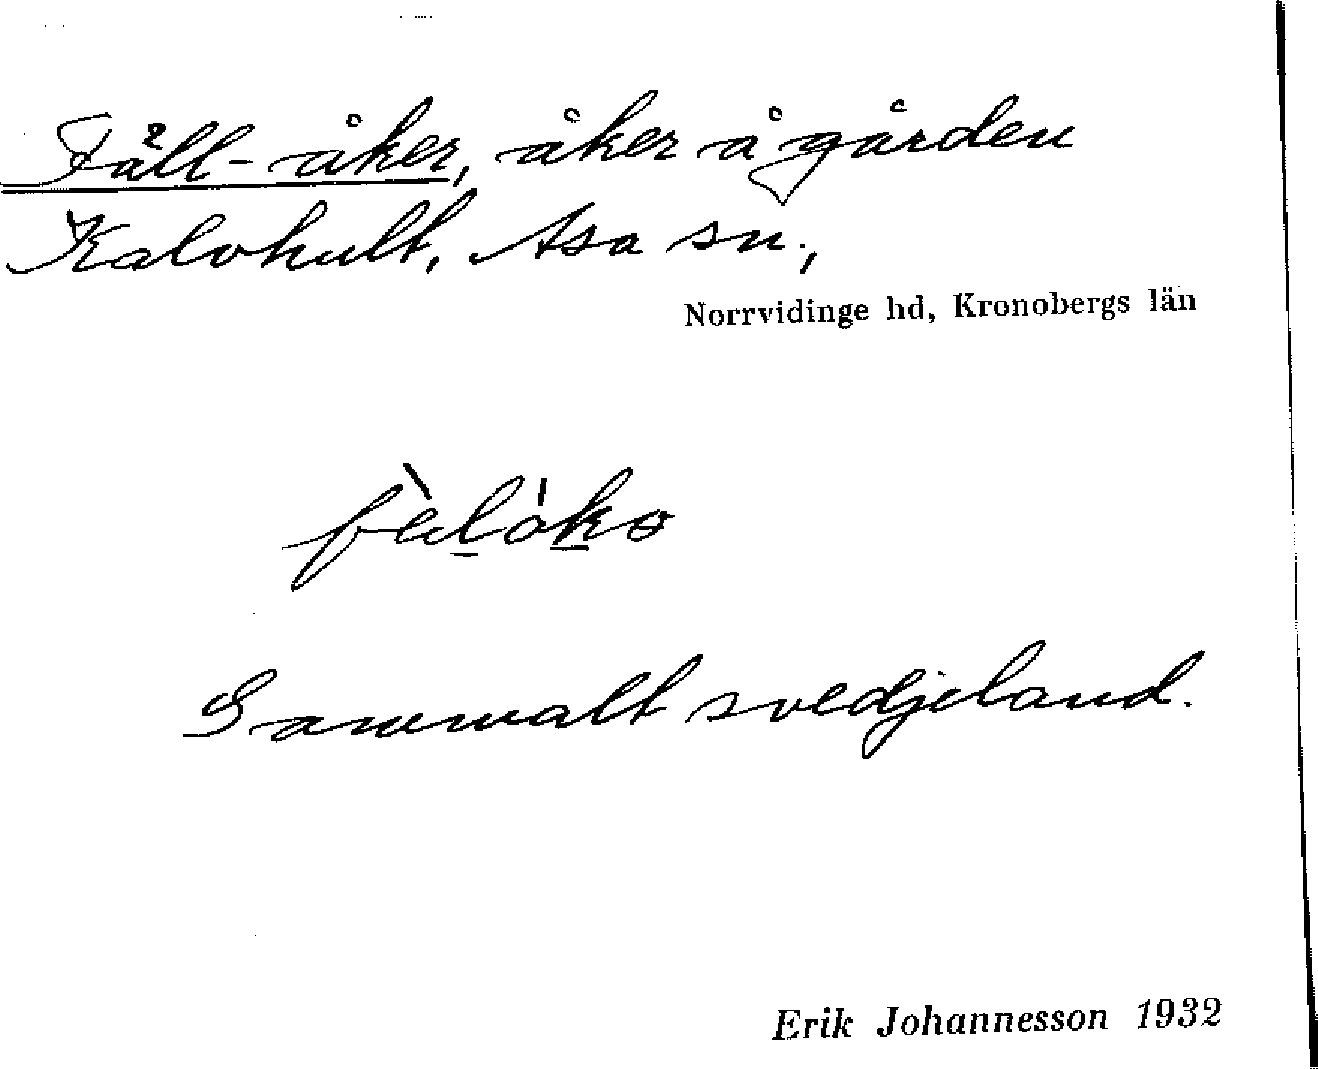 Fäll-åker, åker å gården
Kalvhult, Asa sn.,
Norrvidinge hd, Kronobergs län
Gammalt svedjeland.
Erik Johannesson 1932